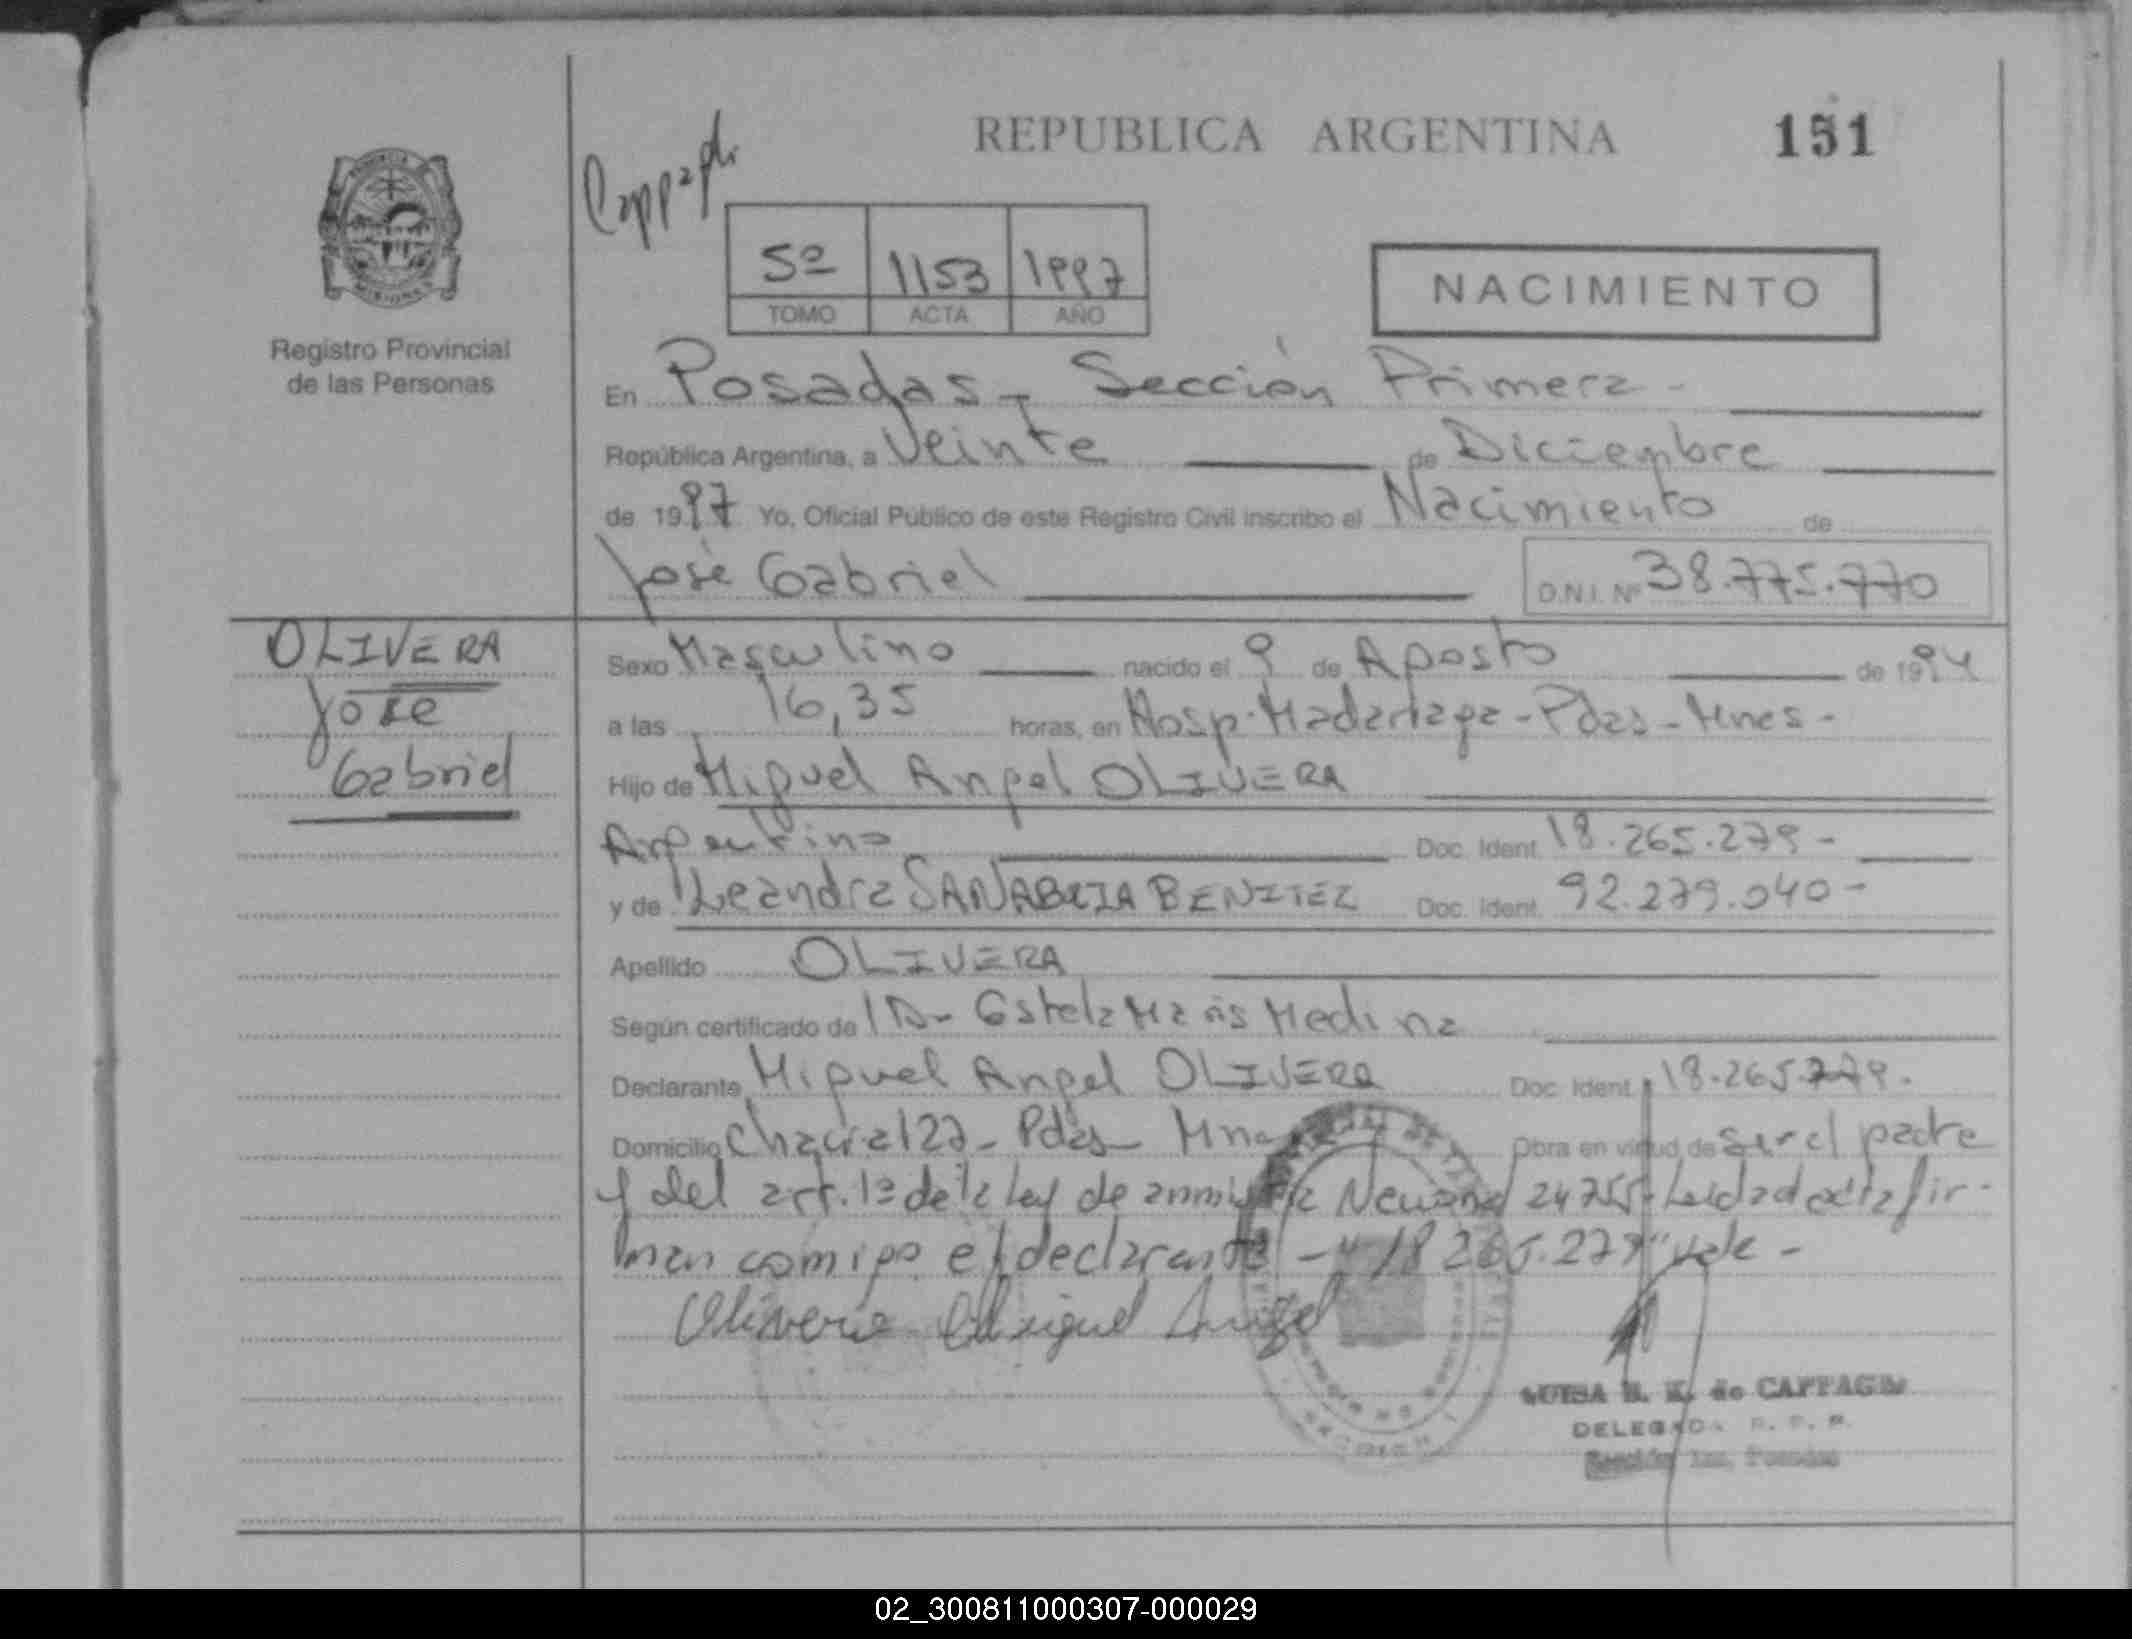 REPUBLICA ARGENTINA 151
Cappagli
5º 1153 1997
TOMO ACTA AÑO
NACIMIENTO
Registro Provincial
de las Personas
En Posadas - Sección Primera -
República Argentina, a Veinte de Diciembre
de 1997 Yo, Oficial Público de este Registro Civil inscribo el Nacimiento de
José Gabriel D.N.I. Nº 38.775.770
OLIVERA
José
Gabriel
Sexo Masculino nacido el 9 de Agosto de 1994
a las 16,35 horas, en Hosp. Madariaga - Pdas - Mnes -
Hijo de Miguel Angel OLIVERA
Argentino Doc. Ident. 18.265.279 -
y de Leandra SANABRIA BENITEZ Doc. Ident. 92.279.040 -
Apellido OLIVERA
Según certificado de Estela Maris Medina
Declarante Miguel Angel OLIVERA Doc. Ident. 18.265.779.
Domicilio Chacra 127 - Pdas - Mnes Obra en virtud de ser el padre
y del art. 1º de la ley de amnistía Nacional 24755 - Leída el acta fir-
man conmigo el declarante - "18 265.279" vale -
Olivera Miguel Angel
LUISA H. K. de CAPPAGLI
DELEGADA R. P. P.
Sección 1ra. Posadas
02_300811000307-000029